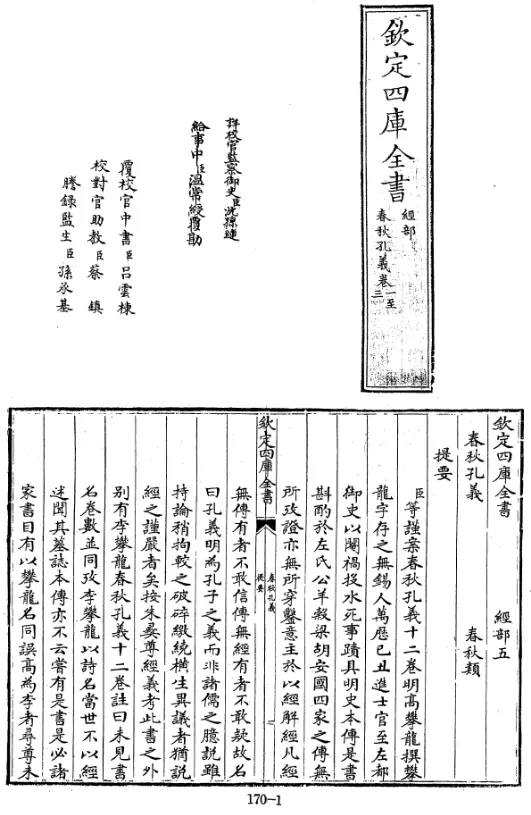 欽定四庫全書
經部
春秋孔義卷一至三
詳校官監察御史臣沈孫璉
給事中臣溫常綬覆勘
覆校官中書臣呂雲棟
校對官助教臣蔡鎮
謄錄監生臣孫丞基
欽定四庫全書 經部五
春秋孔義 春秋類
提要
臣等謹案春秋孔義十二卷明高攀龍撰攀
龍字存之無錫人萬歷己丑進士官至左都
御史以閹禍投水死事蹟具明史本傳是書
斟酌於左氏公羊榖梁胡安國四家之傳無
所攷證亦無所穿鑿意主於以經解經凡經
無傳有者不敢信傳無經有者不敢疑故名
欽定四庫全書
春秋孔義
提要
一
曰孔義明為孔子之義而非諸儒之臆說雖
持論稍拘較之破碎繳繞橫生異議者猶說
經之謹嚴者矣按朱彝尊經義考此書之外
別有李攀龍春秋孔義十二卷註曰未見書
名卷數並同攷李攀龍以詩名當世不以經
述聞其墓誌本傳亦不云嘗有是書是必諸
家書目有以攀龍名同誤高為李者尋尊未
170-1